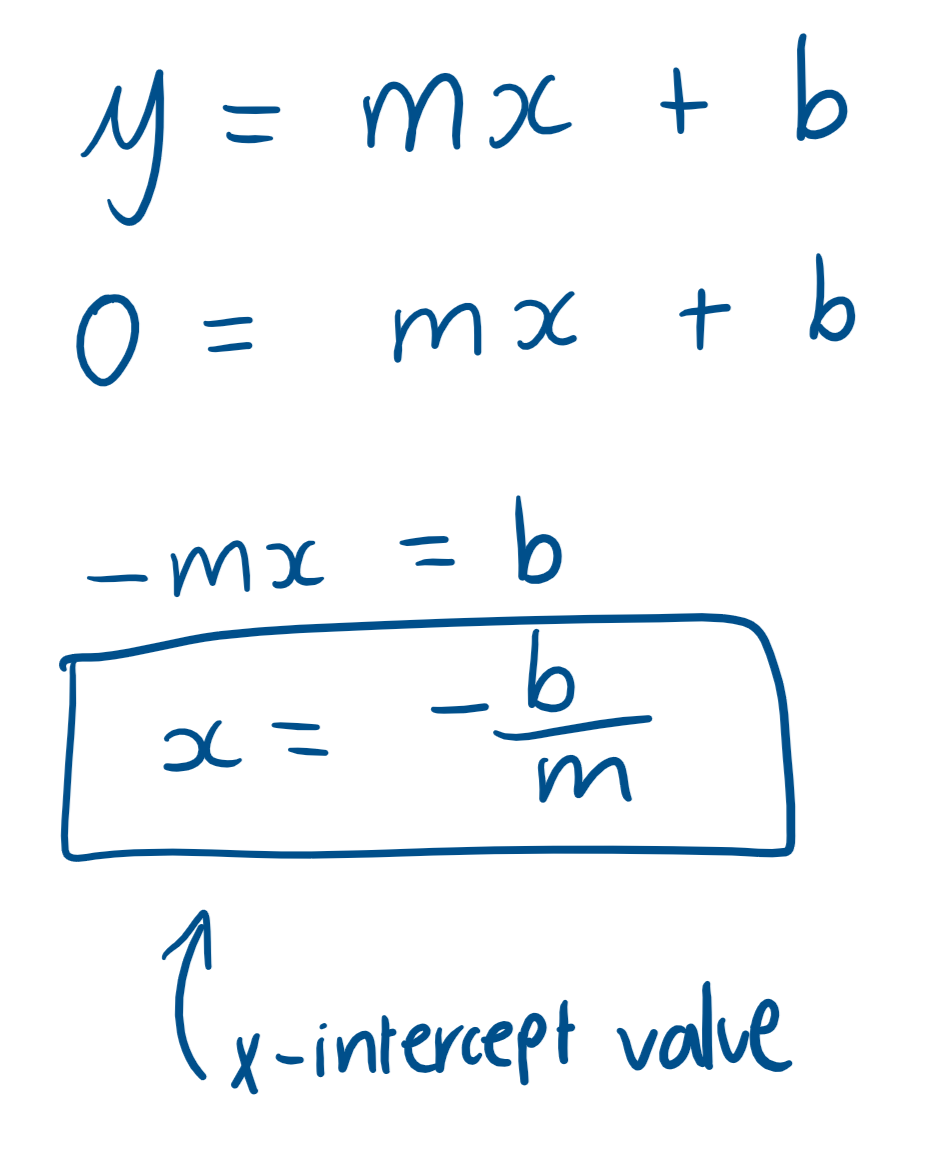 y = mx + b
0 = mx + b
-mx = b
x = -b/m
x-intercept value